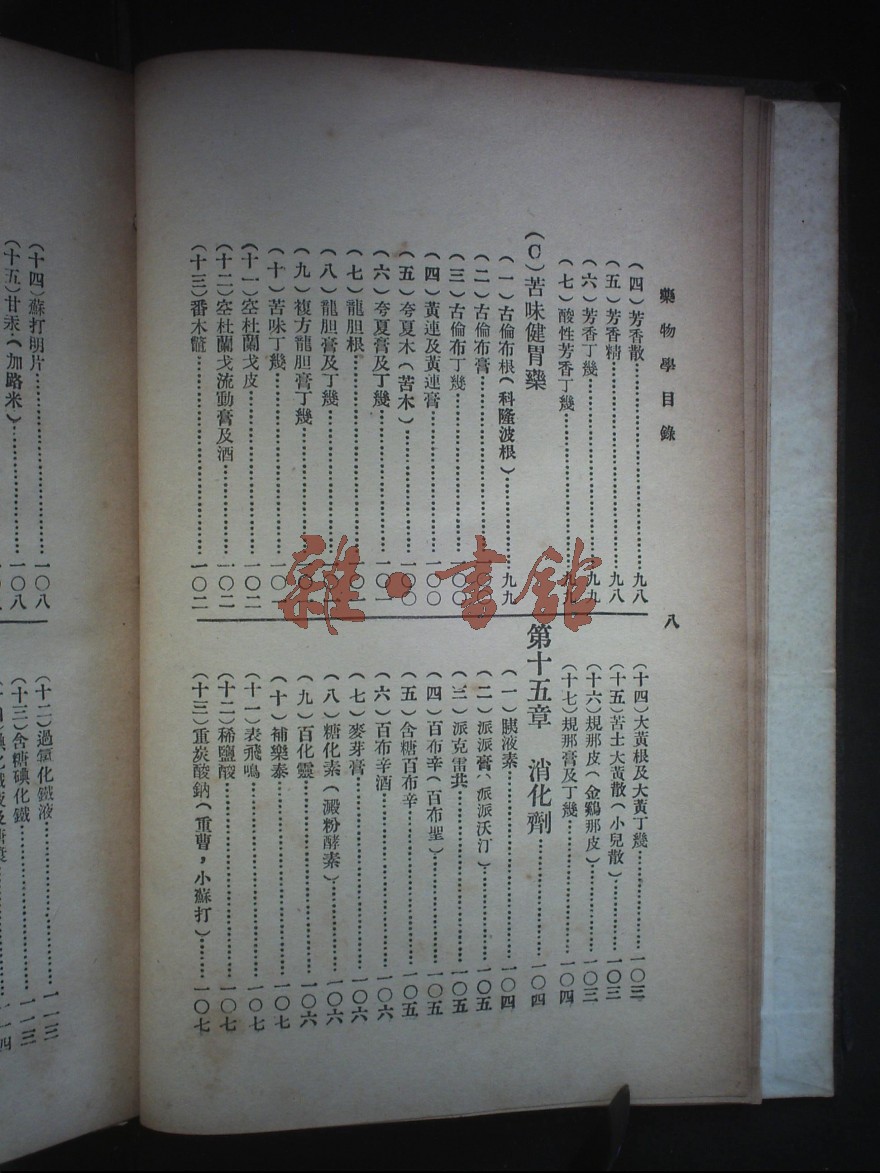 藥物學目錄
八
(四)芳香散……九八
(五)芳香精……九八
(六)芳香丁幾……九九
(七)酸性芳香丁幾……九九
(C)苦味健胃藥
(一)古倫布根(科隆波根)……九九
(二)古倫布膏……
(三)古倫布丁幾……一〇〇
(四)黃連及黃連膏……一〇〇
(五)夸夏木(苦木)……一〇〇
(六)夸夏膏及丁幾……一〇一
(七)龍胆根……一〇一
(八)龍胆膏及丁幾……一〇一
(九)複方龍胆膏丁幾……一〇
(十)苦味丁幾……一〇
(十一)空杜蘭戈皮……一〇二
(十二)空杜蘭戈流動膏及酒……一〇二
(十三)番木鼈……一〇二
(十四)大黃根及大黃丁幾……一〇三
(十五)苦土大黃散(小兒散)……一〇三
(十六)規那皮(金鷄那皮)……一〇三
(十七)規那膏及丁幾……一〇四
第十五章 消化劑……一〇四
(一)胰液素……一〇四
(二)派派膏(派派沃汀)……一〇五
(三)派克雷共……一〇五
(四)百布辛(百布聖)……一〇五
(五)含糖百布辛……一〇五
(六)百布辛酒……一〇六
(七)麥芽膏……一〇六
(八)糖化素(澱粉酵素)……一〇六
(九)百化靈……一〇六
(十)補樂泰……一〇七
(十一)表飛鳴……一〇七
(十二)稀鹽酸……一〇七
(十三)重炭酸鈉(重曹,小蘇打)……一〇七
(十四)蘇打明片……一〇八
(十五)甘汞(加路米)……一〇八
(十二)過氯化鐵液……一一三
(十三)含糖碘化鐵……一一三
雜·書館